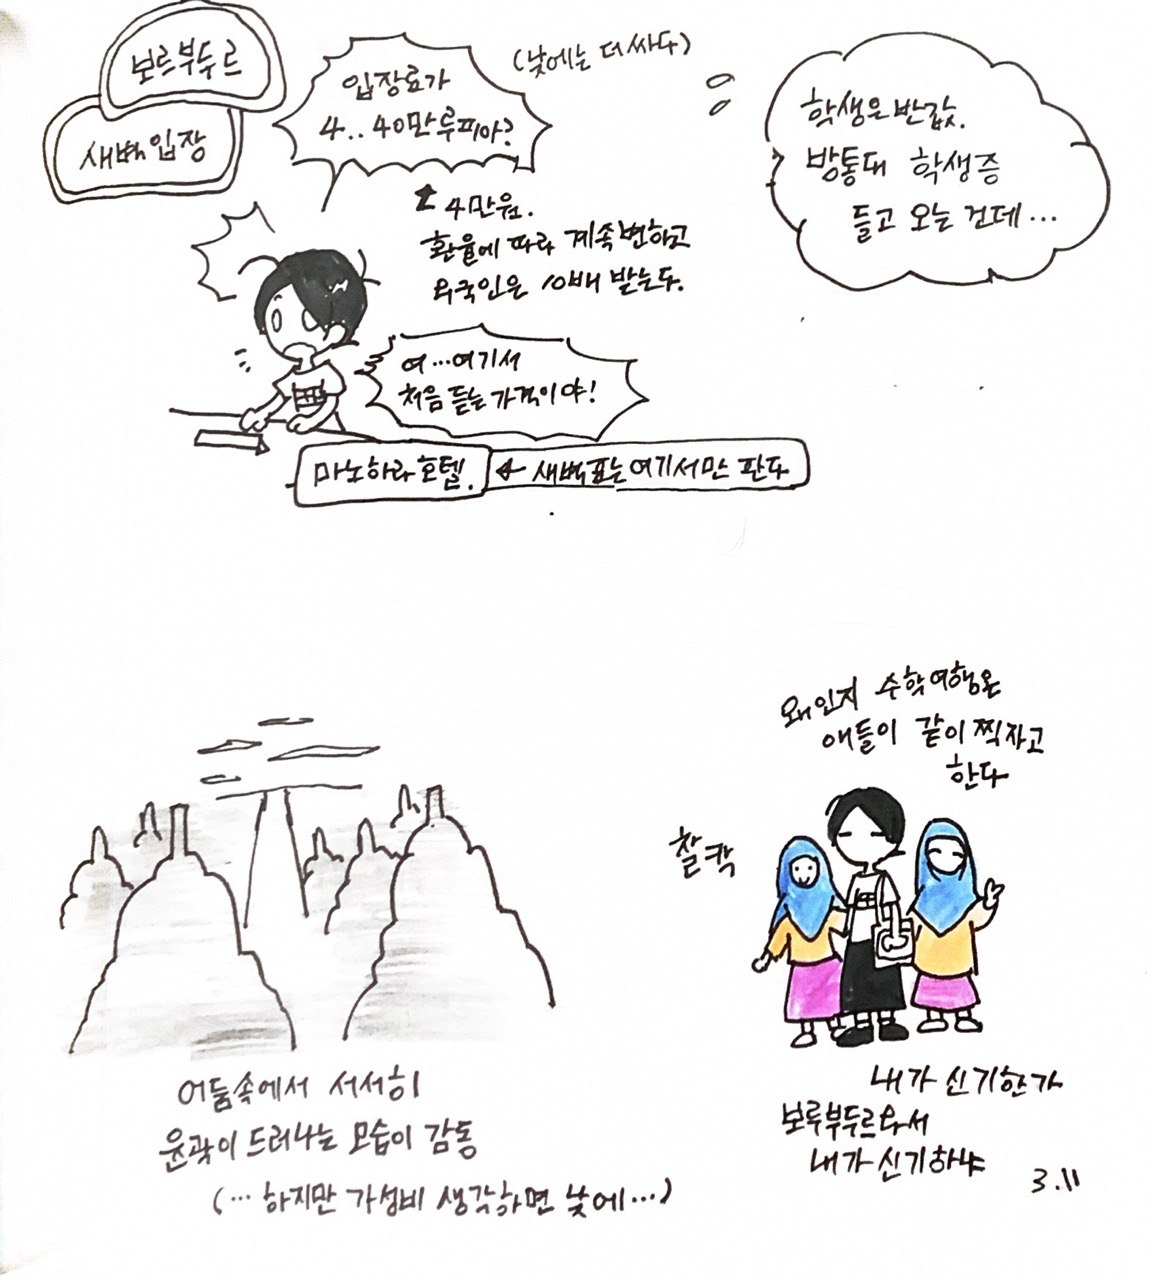 보르부두르
새벽입장
입장료가
4..40만루피아?
(낮에는 더 싸다)
학생은 반값.
방통대 학생증
들고 오는 건데...
± 4만원.
환율에 따라 계속변하고
외국인은 10배 받는다.
여...여기서
처음 듣는 가격이야!
마노하라 호텔.
← 새벽표는 여기서만 판다
왜인지 수학여행온
애들이 같이 찍자고
한다
찰칵
어둠속에서 서서히
윤곽이 드러나는 모습이 감동
(... 하지만 가성비 생각하면 낮에...)
내가 신기한가
보루부두르와서
내가 신기하냐
3.11